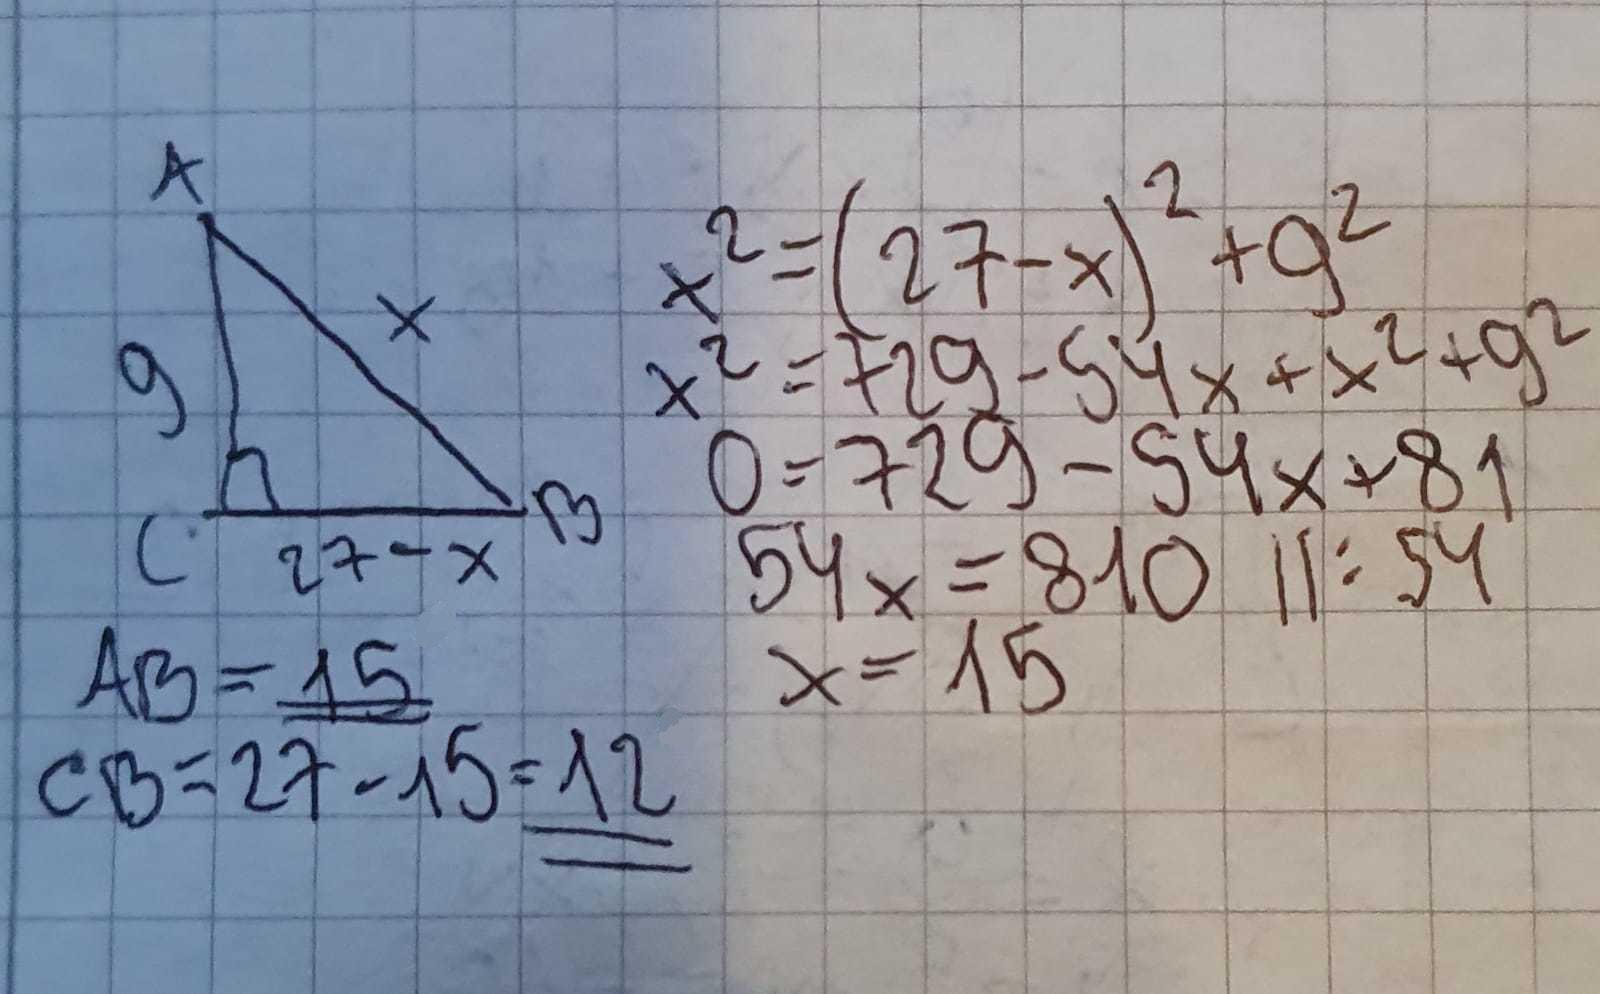 A
x
9
C
B
27-x
AB = 15
CB = 27 - 15 = 12
x² = (27-x)² + 9²
x² = 729 - 54x + x² + 9²
0 = 729 - 54x + 81
54x = 810 ||: 54
x = 15